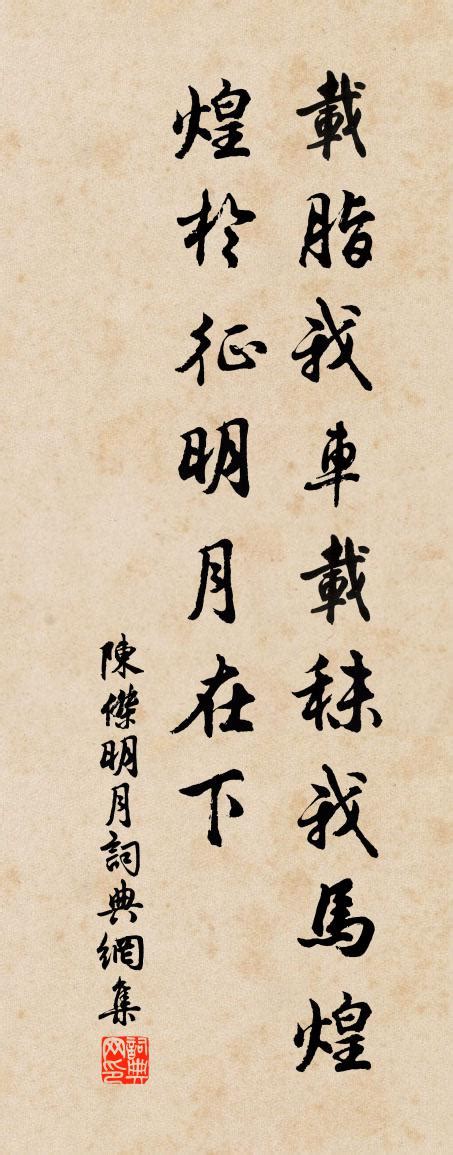 載脂我車載秣我馬煌
煌於征明月在下
陳傑明月詞典網集
詞典
网印